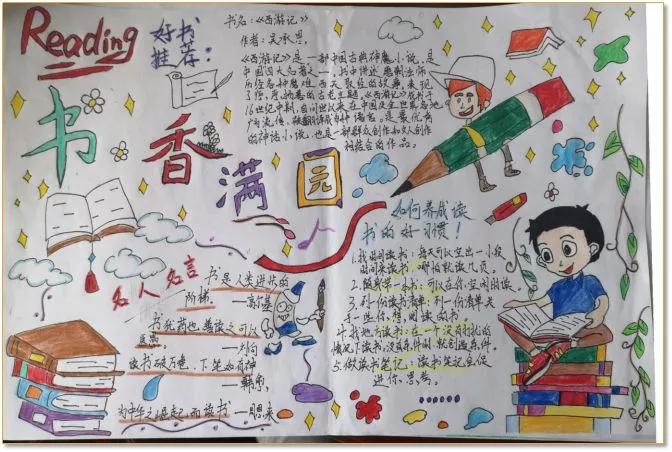 Reading
好书
推荐:
书香满园
书名:《西游记》
作者:吴承恩
《西游记》是一部中国古典神魔小说,是
中国四大名著之一。书中讲述唐朝法师
西天取经的故事,表现
了惩恶扬善的古老主题。《西游记》成书于
16世纪中期,自问世以来在中国及世界各地
广为流传,被翻译成多种语言。是最优秀
的神话小说,也是一部群众创作和文人创作
相结合的作品。
名人名言
书是人类进步的
阶梯。
—高尔基
书犹药也,善读之可以
医愚
—刘向
读书破万卷,下笔如有神
为中华之崛起而读书
如何养成读
书的好习惯!
1.我的读书:每天可以空出一小段
时间来读书,哪怕就读几页。
2.随身带一本书:可以在你空闲时读。
3.列一份读书清单:列一份清单关
于一些你想阅读的书
4.找地方读书:在一个没有打扰的
情况下读书,没有条件的,就创造条件。
5.做读书笔记:读书笔记会促
进你思考。